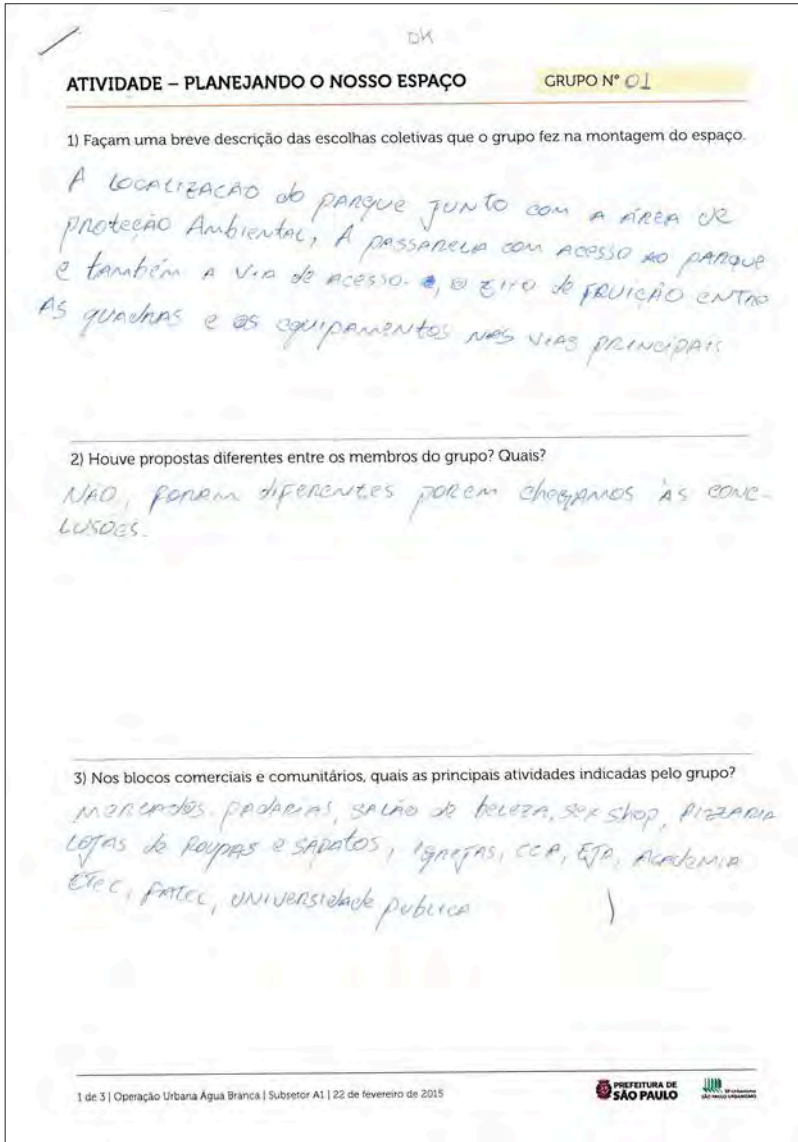 OK
ATIVIDADE – PLANEJANDO O NOSSO ESPAÇO GRUPO Nº 01
1) Façam uma breve descrição das escolhas coletivas que o grupo fez na montagem do espaço.
A LOCALIZACÃO do PARQUE JUNTO COM A ÁREA DE
PROTEÇÃO AMBIENTAL, A PASSARELA COM ACESSO AO PARQUE
e também A VIA de ACESSO. e, o EIXO de FRUIÇÃO ENTRE
AS QUADRAS e os EQUIPAMENTOS NAS VIAS PRINCIPAIS
2) Houve propostas diferentes entre os membros do grupo? Quais?
NÃO, FORAM DIFERENTES POREM CHEGAMOS AS CONC-
LUSÕES.
3) Nos blocos comerciais e comunitários, quais as principais atividades indicadas pelo grupo?
MERCADOS. PADARIAS, SALÃO DE BELEZA, SEX SHOP, PIZZARIA
LOJAS de ROUPAS e SAPATOS, IGREJAS, CCA, EJA, ACADEMIA
ETEC, FATEC, UNIVERSIDADE PUBLICA
1 de 3 | Operação Urbana Água Branca | Subsetor A1 | 22 de fevereiro de 2015
PREFEITURA DE
SÃO PAULO
SP Urbanismo
SÃO PAULO URBANISMO